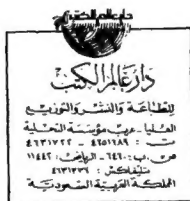 دار عالم الكتب
للطباعة والنشر والتوزيع
العليا - غرب مؤسسة التحلية
ت : ٤٦٥١٦٨٩ - ٤٦٣١٧٢٢
ص.ب: ٦٤٦٠ - الرياض: ١١٤٤٢
تليفاكس: ٤٦٣١٣٣٦
المملكة العربية السعودية